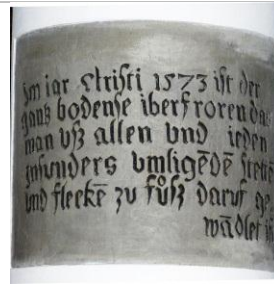 im iar Christi 1573 ist der
ganz bodense iberfroren das
man vß allen vnd ieden
insunders vmligēdē stette
vnd fleckē zu fůß daruf ge
wādlet is